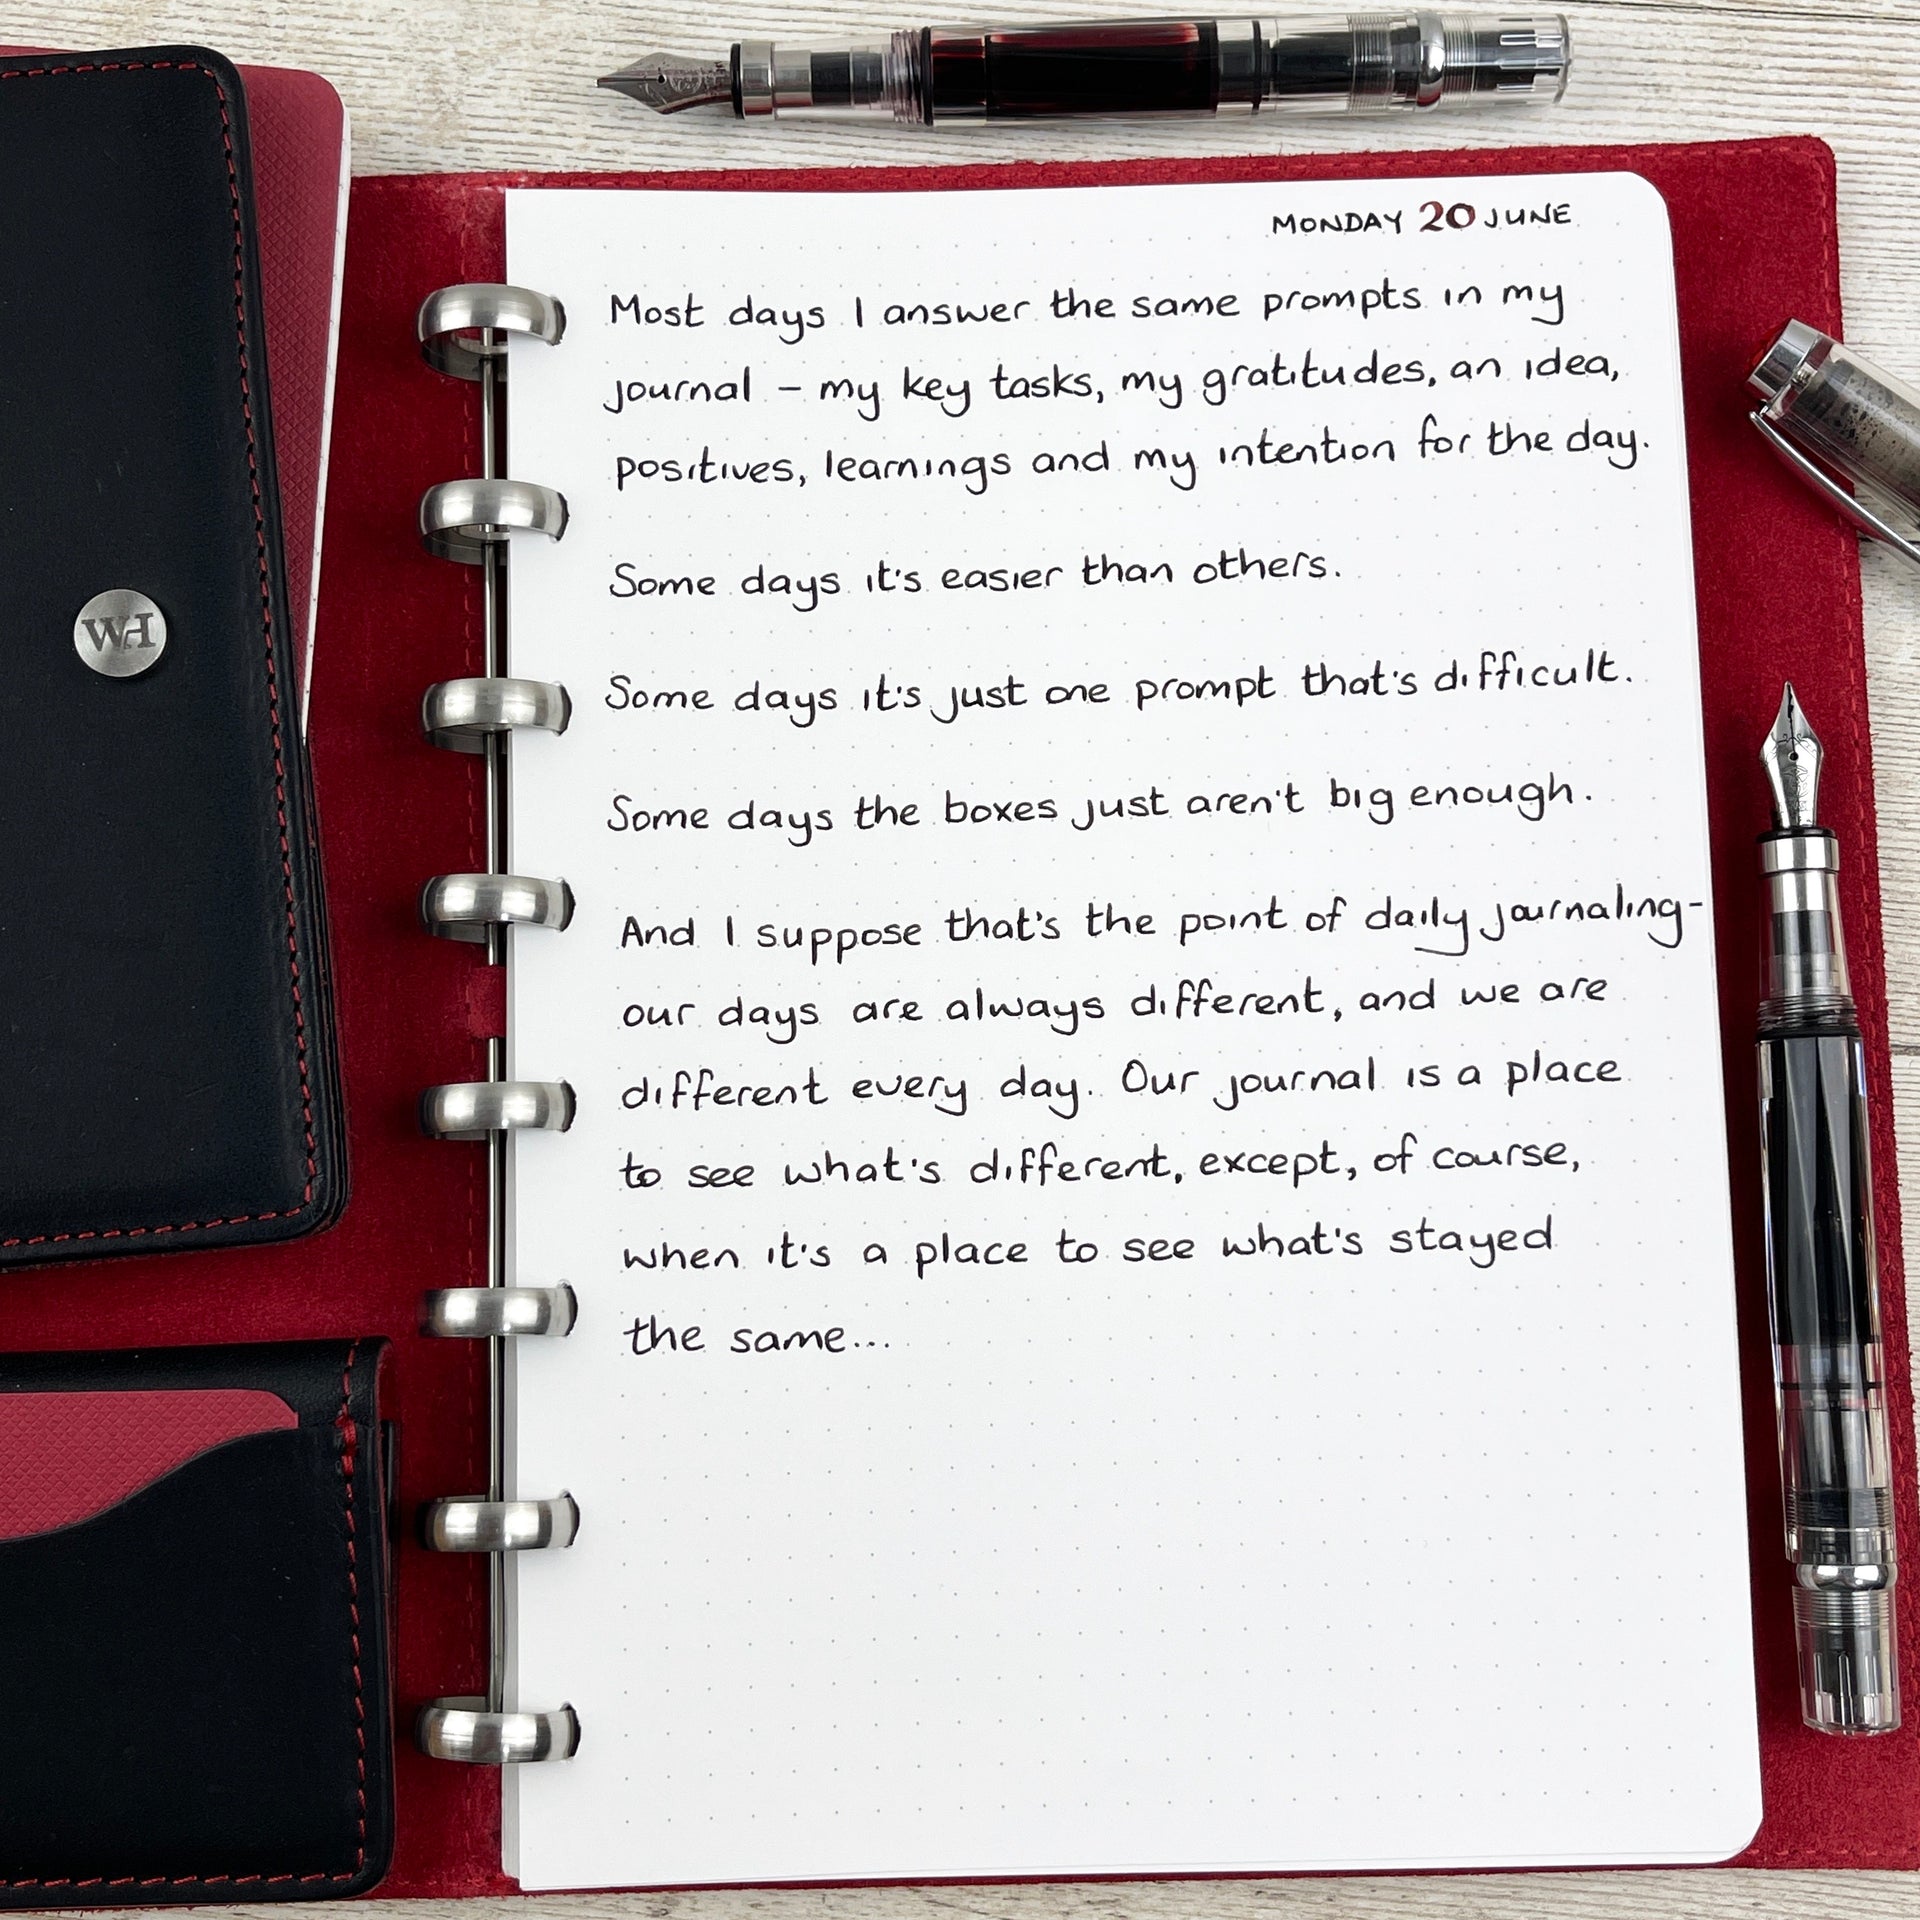 MONDAY 20 JUNE
Most days I answer the same prompts in my
journal – my key tasks, my gratitudes, an idea,
positives, learnings and my intention for the day.
Some days it's easier than others.
Some days it's just one prompt that's difficult.
Some days the boxes just aren't big enough.
And I suppose that's the point of daily journaling-
our days are always different, and we are
different every day. Our journal is a place
to see what's different, except, of course,
when it's a place to see what's stayed
the same...
WH